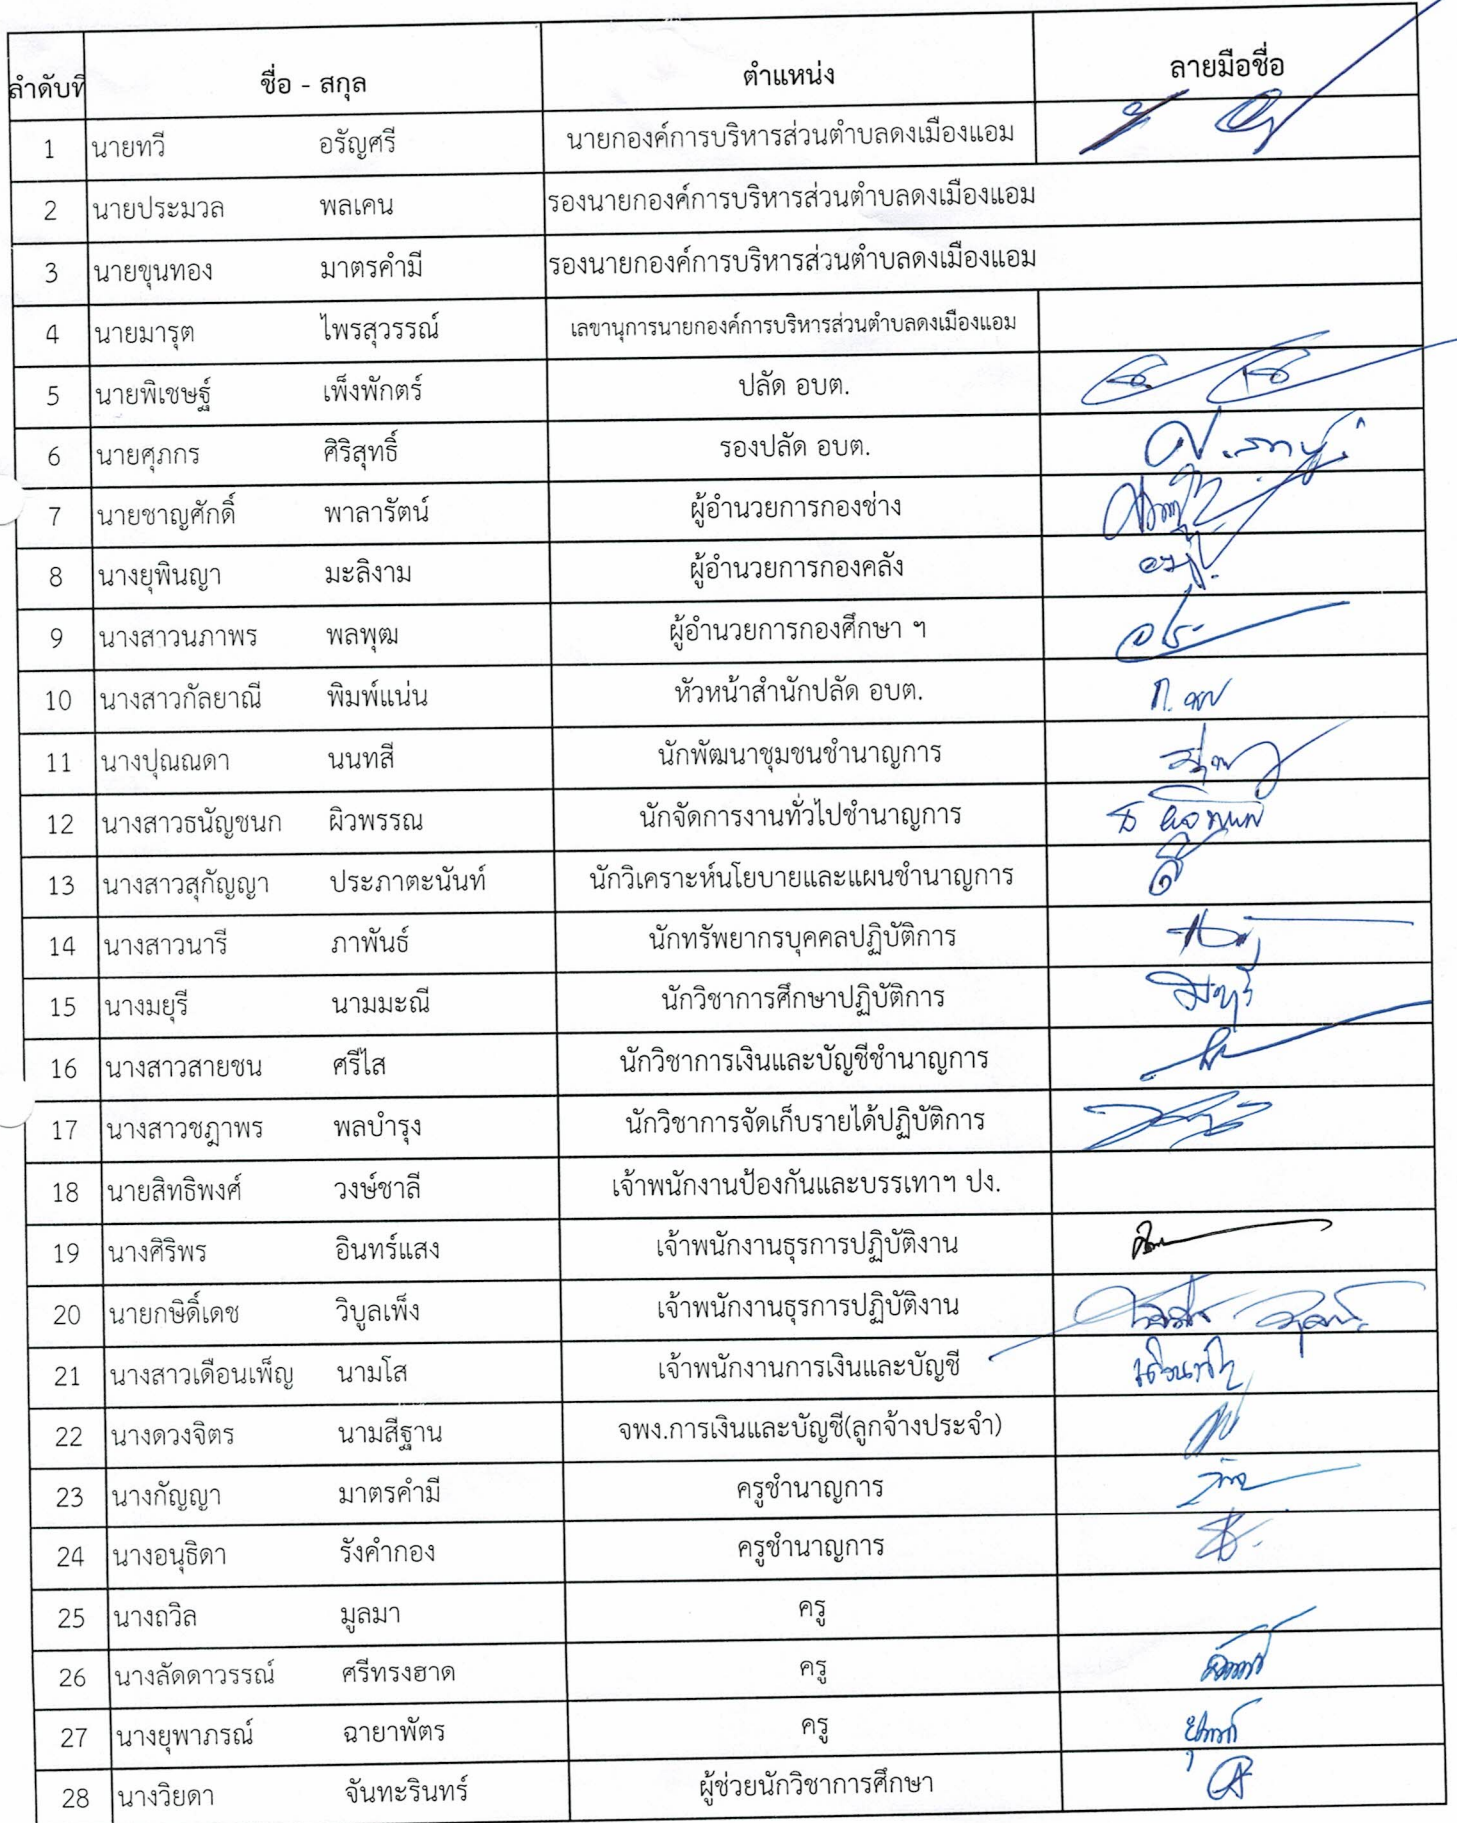 ลำดับที่ ชื่อ - สกุล ตำแหน่ง ลายมือชื่อ
1 นายทวี อรัญศรี นายกองค์การบริหารส่วนตำบลดงเมืองแอม
2 นายประมวล พลเคน รองนายกองค์การบริหารส่วนตำบลดงเมืองแอม
3 นายขุนทอง มาตรคำมี รองนายกองค์การบริหารส่วนตำบลดงเมืองแอม
4 นายมารุต ไพรสุวรรณ์ เลขานุการนายกองค์การบริหารส่วนตำบลดงเมืองแอม
5 นายพิเชษฐ์ เพ็งพักตร์ ปลัด อบต.
6 นายศุภกร ศิริสุทธิ์ รองปลัด อบต.
7 นายชาญศักดิ์ พาลารัตน์ ผู้อำนวยการกองช่าง
8 นางยุพินญา มะลิงาม ผู้อำนวยการกองคลัง
9 นางสาวนภาพร พลพุฒ ผู้อำนวยการกองศึกษา ฯ
10 นางสาวกัลยาณี พิมพ์แน่น หัวหน้าสำนักปลัด อบต.
11 นางปุณณดา นนทสี นักพัฒนาชุมชนชำนาญการ
12 นางสาวธนัญชนก ผิวพรรณ นักจัดการงานทั่วไปชำนาญการ
13 นางสาวสุกัญญา ประภาตะนันท์ นักวิเคราะห์นโยบายและแผนชำนาญการ
14 นางสาวนารี ภาพันธ์ นักทรัพยากรบุคคลปฏิบัติการ
15 นางมยุรี นามมะณี นักวิชาการศึกษาปฏิบัติการ
16 นางสาวสายชน ศรีไส นักวิชาการเงินและบัญชีชำนาญการ
17 นางสาวชฎาพร พลบำรุง นักวิชาการจัดเก็บรายได้ปฏิบัติการ
18 นายสิทธิพงศ์ วงษ์ชาลี เจ้าพนักงานป้องกันและบรรเทาฯ ปง.
19 นางศิริพร อินทร์แสง เจ้าพนักงานธุรการปฏิบัติงาน
20 นายกษิดิ์เดช วิบูลเพ็ง เจ้าพนักงานธุรการปฏิบัติงาน
21 นางสาวเดือนเพ็ญ นามโส เจ้าพนักงานการเงินและบัญชี
22 นางดวงจิตร นามสีฐาน จพง.การเงินและบัญชี(ลูกจ้างประจำ)
23 นางกัญญา มาตรคำมี ครูชำนาญการ
24 นางอนุธิดา รังคำกอง ครูชำนาญการ
25 นางถวิล มูลมา ครู
26 นางลัดดาวรรณ์ ศรีทรงฮาด ครู
27 นางยุพาภรณ์ ฉายาพัตร ครู
28 นางวิยดา จันทะรินทร์ ผู้ช่วยนักวิชาการศึกษา